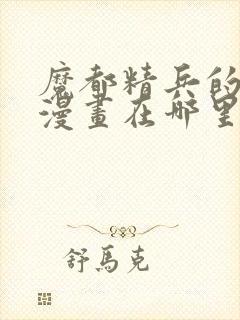 魔都精兵的
漫畫在哪里
舒馬克